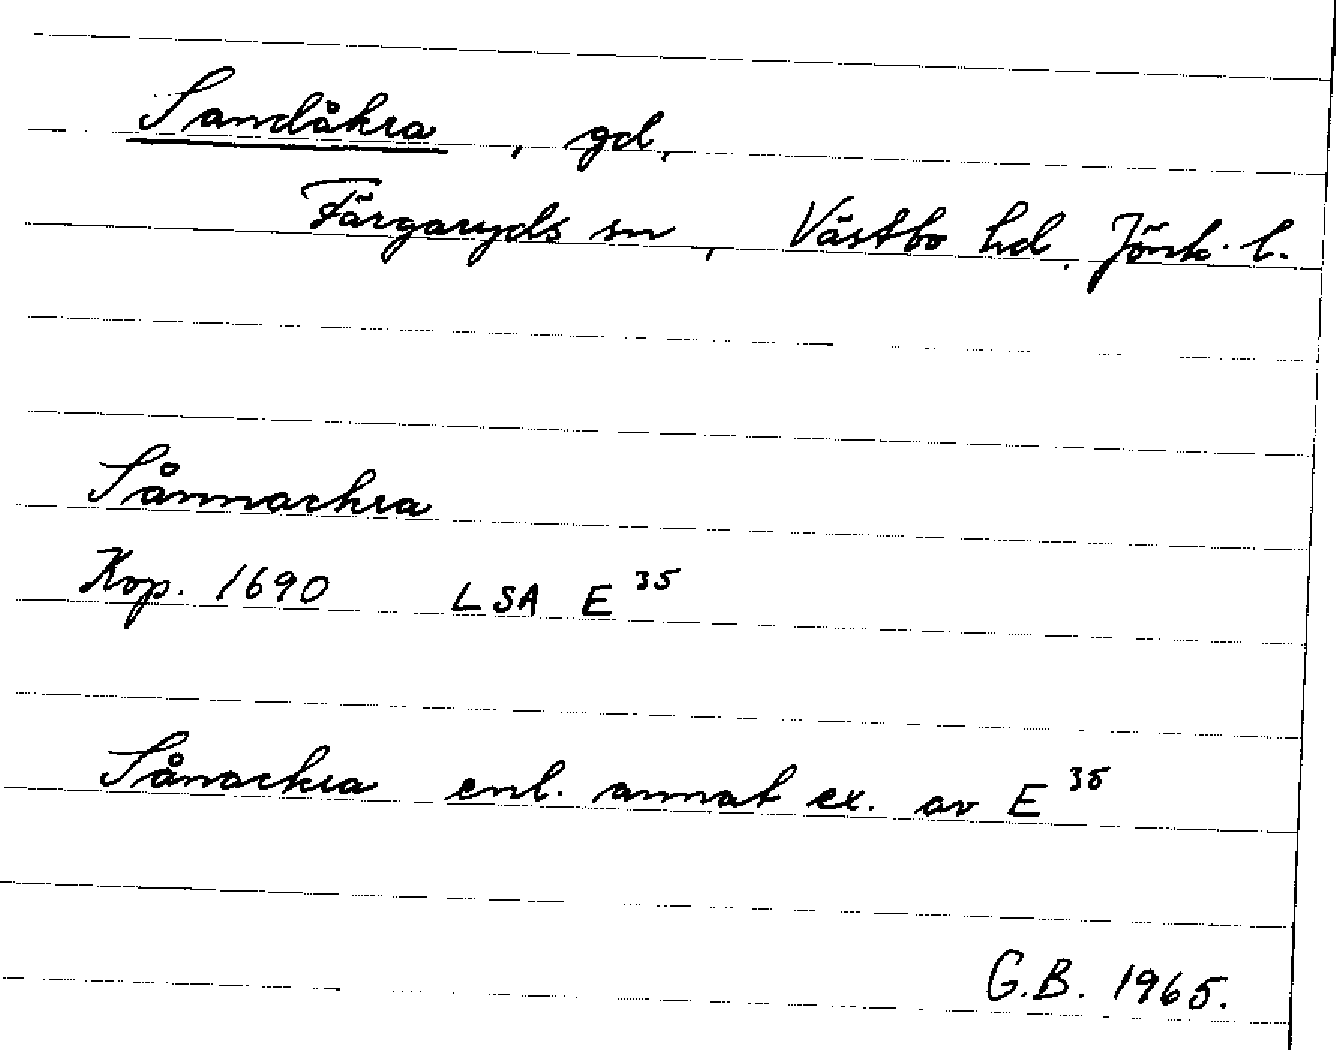 Sandåkra, gd,
Färgaryds sn, Västbo hd. Jönk. l.
Sånnackra
Kop. 1690 LSA E 35
Sånackra enl. annat ex. av E 35
G.B. 1965.